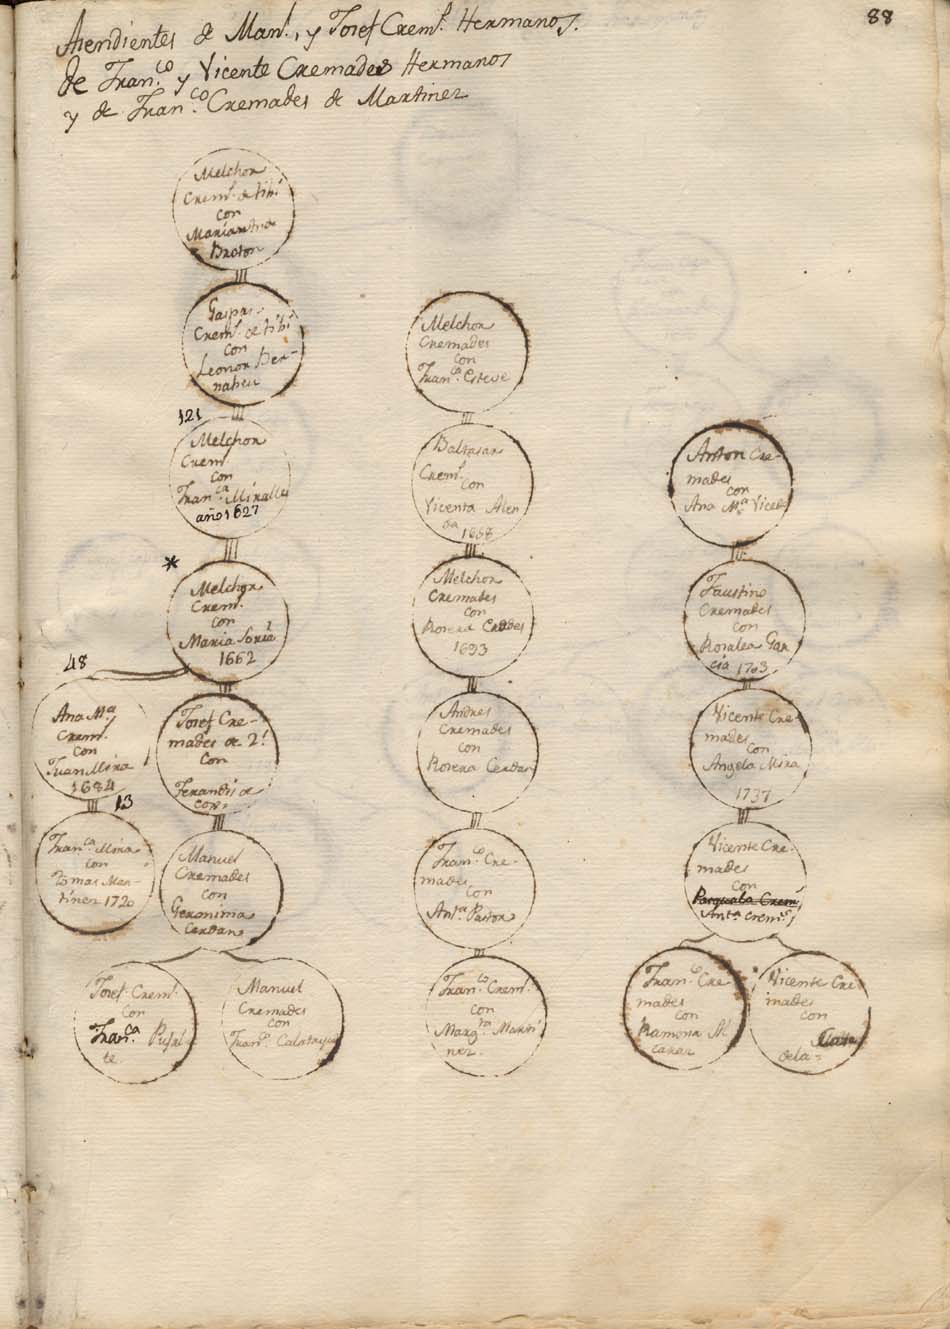 88
Asendientes de Man.l, y Josef Crem.s Hermanos.
de Fran.co y Vicente Cremades Hermanos
y de Fran.co Cremades de Martinez
Melchor
Crem.s de tibi
con
Mariantra
Broton
Gaspar
Crem.s de tibi
con
Leonor Ber-
nabeu
121
Melchor
Crem.s
con
Fran.ca Miralles
año 1627
*
Melchor
Crem.s
con
Maria Soria
1662
48
Ana M.a
Crem.s
con
Juan Mira
1684
Josef Cre-
mades de 2.s
con
Ferandis de
cor.s
13
Fran.ca Mira
con
tomas Mar-
tinez 1720
Manuel
Cremades
con
Geronima
Cerdan
Josef Crem.s
con
Fran.ca Pujal-
te
Manuel
Cremades
con
Fran.ca Calatayud
Melchor
Cremades
con
Fran.ca Esteve
Baltasar
Crem.s
con
Vicenta Alen
da 1658
Melchor
Cremades
con
Rosera Cerdes
1693
Andres
Cremades
con
Rosera Cerdan
Fran.co Cre-
mades
con
Ant.a Pastor
Fran.co Crem.s
con
Marg.ta Marti
nez.
Anton Cre-
mades
con
Ana M.a Vicedo
Faustino
Cremades
con
Rosalea Gar
cia 1703
Vicente Cre
mades
con
Angela Mira
1737
Vicente Cre-
mades
con
Pasquala Crem.s
Ant.a Crem.s
Fran.co Cre
mades
con
Ramona Al
cazar
Vicente Cre
mades
con
dela=